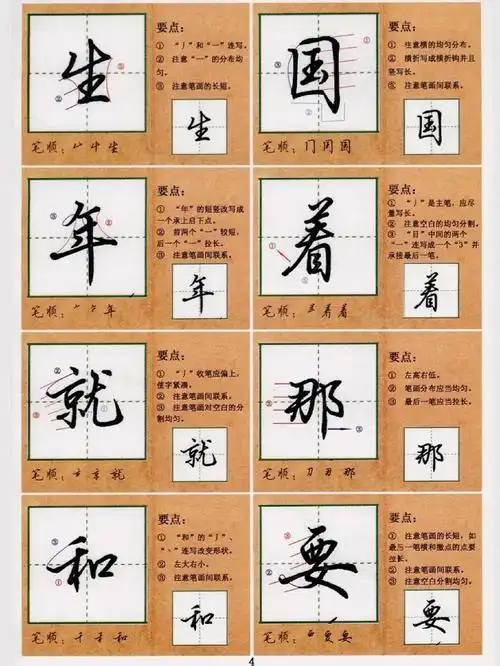 生
要点：
① “丿”和“一”连写。
② 注意“一”的分布均
匀。
③ 注意笔画的长短。
生
笔顺：
生
国
要点：
① 注意横的均匀分布。
② 横折写成横折钩并且
竖写长。
③ 注意笔画间联系。
国
笔顺：
国
年
要点：
① “年”的短竖改写成
一个承上启下点。
② 前两个“一”较短，
后一个“一”拉长。
③ 注意笔画间联系。
年
笔顺：
年
着
要点：
① “丿”是主笔，应尽
量写长。
② 注意空白的均匀分割。
③ “目”中间的两个
“一”连写成一个“3”并
承接最后一笔。
着
笔顺：
着着
就
要点：
① “丿”收笔应偏上，
使字紧凑。
② 注意笔画间联系。
③ 注意笔画对空白的分
割均匀。
就
笔顺：
就
那
要点：
① 左高右低。
② 笔画分布应当均匀。
③ 最后一笔应当拉长。
那
笔顺：
那
和
要点：
① “和”的“丿”、
“丶”连写改变形状。
② 左大右小。
③ 注意笔画间联系。
和
笔顺：
和
要
要点：
① 注意笔画的长短，如
最后一笔横和撇点的点要
拉长。
② 注意笔画间联系。
③ 注意空白分割均匀。
要
笔顺：
要要
4